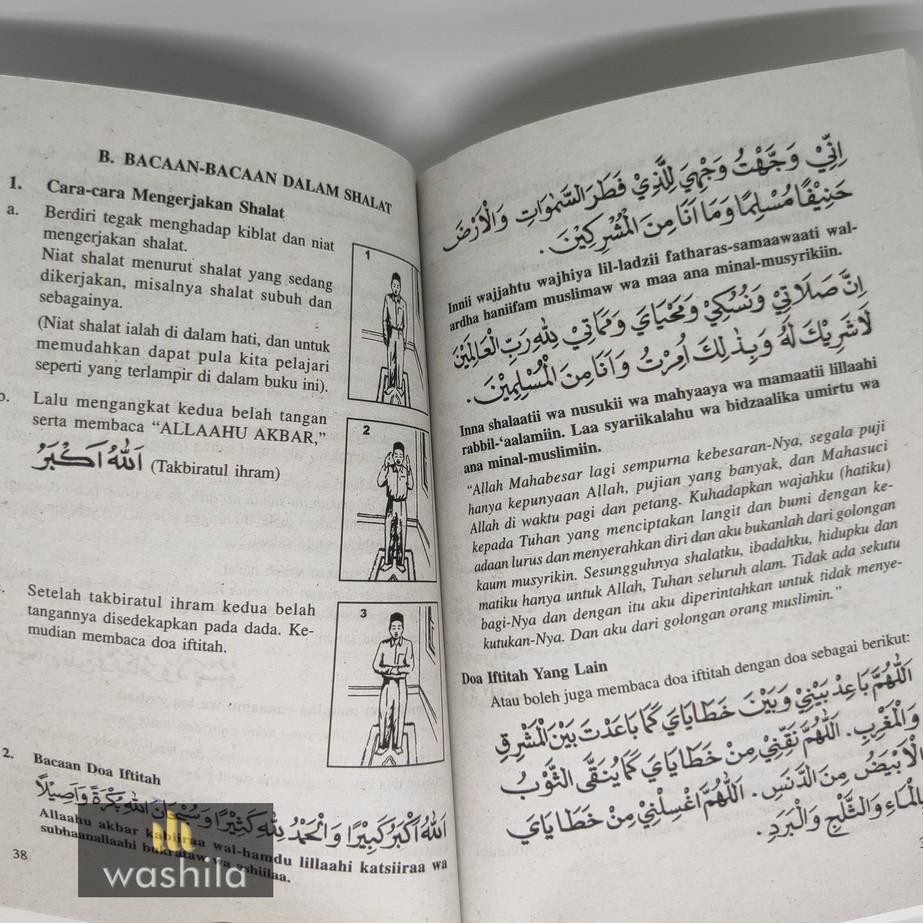 B. BACAAN-BACAAN DALAM SHALAT
1. Cara-cara Mengerjakan Shalat
a. Berdiri tegak menghadap kiblat dan niat
mengerjakan shalat.
Niat shalat menurut shalat yang sedang
dikerjakan, misalnya shalat subuh dan
sebagainya.
(Niat shalat ialah di dalam hati, dan untuk
memudahkan dapat pula kita pelajari
seperti yang terlampir di dalam buku ini).
1
b. Lalu mengangkat kedua belah tangan
serta membaca “ALLAAHU AKBAR,”
اَللهُ اَكْبَرُ (Takbiratul ihram)
2
Setelah takbiratul ihram kedua belah
tangannya disedekapkan pada dada. Ke-
mudian membaca doa iftitah.
3
2. Bacaan Doa Iftitah
اَللهُ اَكْبَرُ كَبِيْرًا وَالْحَمْدُ لِلّٰهِ كَثِيْرًا وَسُبْحَانَ اللهِ بُكْرَةً وَاَصِيْلًا
Allaahu akbar kabiiraa wal-hamdu lillaahi katsiiraa wa
subhaanallaahi bukrataw wa ashiilaa.
38
washila
اِنِّيْ وَجَّهْتُ وَجْهِيَ لِلَّذِيْ فَطَرَ السَّمٰوَاتِ وَالْاَرْضَ
حَنِيْفًا مُسْلِمًا وَمَا اَنَا مِنَ الْمُشْرِكِيْنَ.
Innii wajjahtu wajhiya lil-ladzii fatharas-samaawaati wal-
ardha haniifam muslimaw wa maa ana minal-musyrikiin.
اِنَّ صَلَاتِيْ وَنُسُكِيْ وَمَحْيَايَ وَمَمَاتِيْ لِلّٰهِ رَبِّ الْعَالَمِيْنَ
لَا شَرِيْكَ لَهُ وَبِذٰلِكَ اُمِرْتُ وَاَنَا مِنَ الْمُسْلِمِيْنَ.
Inna shalaatii wa nusukii wa mahyaaya wa mamaatii lillaahi
rabbil-‘aalamiin. Laa syariikalahu wa bidzaalika umirtu wa
ana minal-muslimiin.
“Allah Mahabesar lagi sempurna kebesaran-Nya, segala puji
hanya kepunyaan Allah, pujian yang banyak, dan Mahasuci
Allah di waktu pagi dan petang. Kuhadapkan wajahku (hatiku)
kepada Tuhan yang menciptakan langit dan bumi dengan ke-
adaan lurus dan menyerahkan diri dan aku bukanlah dari golongan
kaum musyrikin. Sesungguhnya shalatku, ibadahku, hidupku dan
matiku hanya untuk Allah, Tuhan seluruh alam. Tidak ada sekutu
bagi-Nya dan dengan itu aku diperintahkan untuk tidak menye-
kutukan-Nya. Dan aku dari golongan orang muslimin.”
Doa Iftitah Yang Lain
Atau boleh juga membaca doa iftitah dengan doa sebagai berikut:
اَللّٰهُمَّ بَاعِدْ بَيْنِيْ وَبَيْنَ خَطَايَايَ كَمَا بَاعَدْتَ بَيْنَ الْمَشْرِقِ
وَالْمَغْرِبِ. اَللّٰهُمَّ نَقِّنِيْ مِنْ خَطَايَايَ كَمَا يُنَقَّى الثَّوْبُ
الْاَبْيَضُ مِنَ الدَّنَسِ. اَللّٰهُمَّ اغْسِلْنِيْ مِنْ خَطَايَايَ
بِالْمَاءِ وَالثَّلْجِ وَالْبَرَدِ.